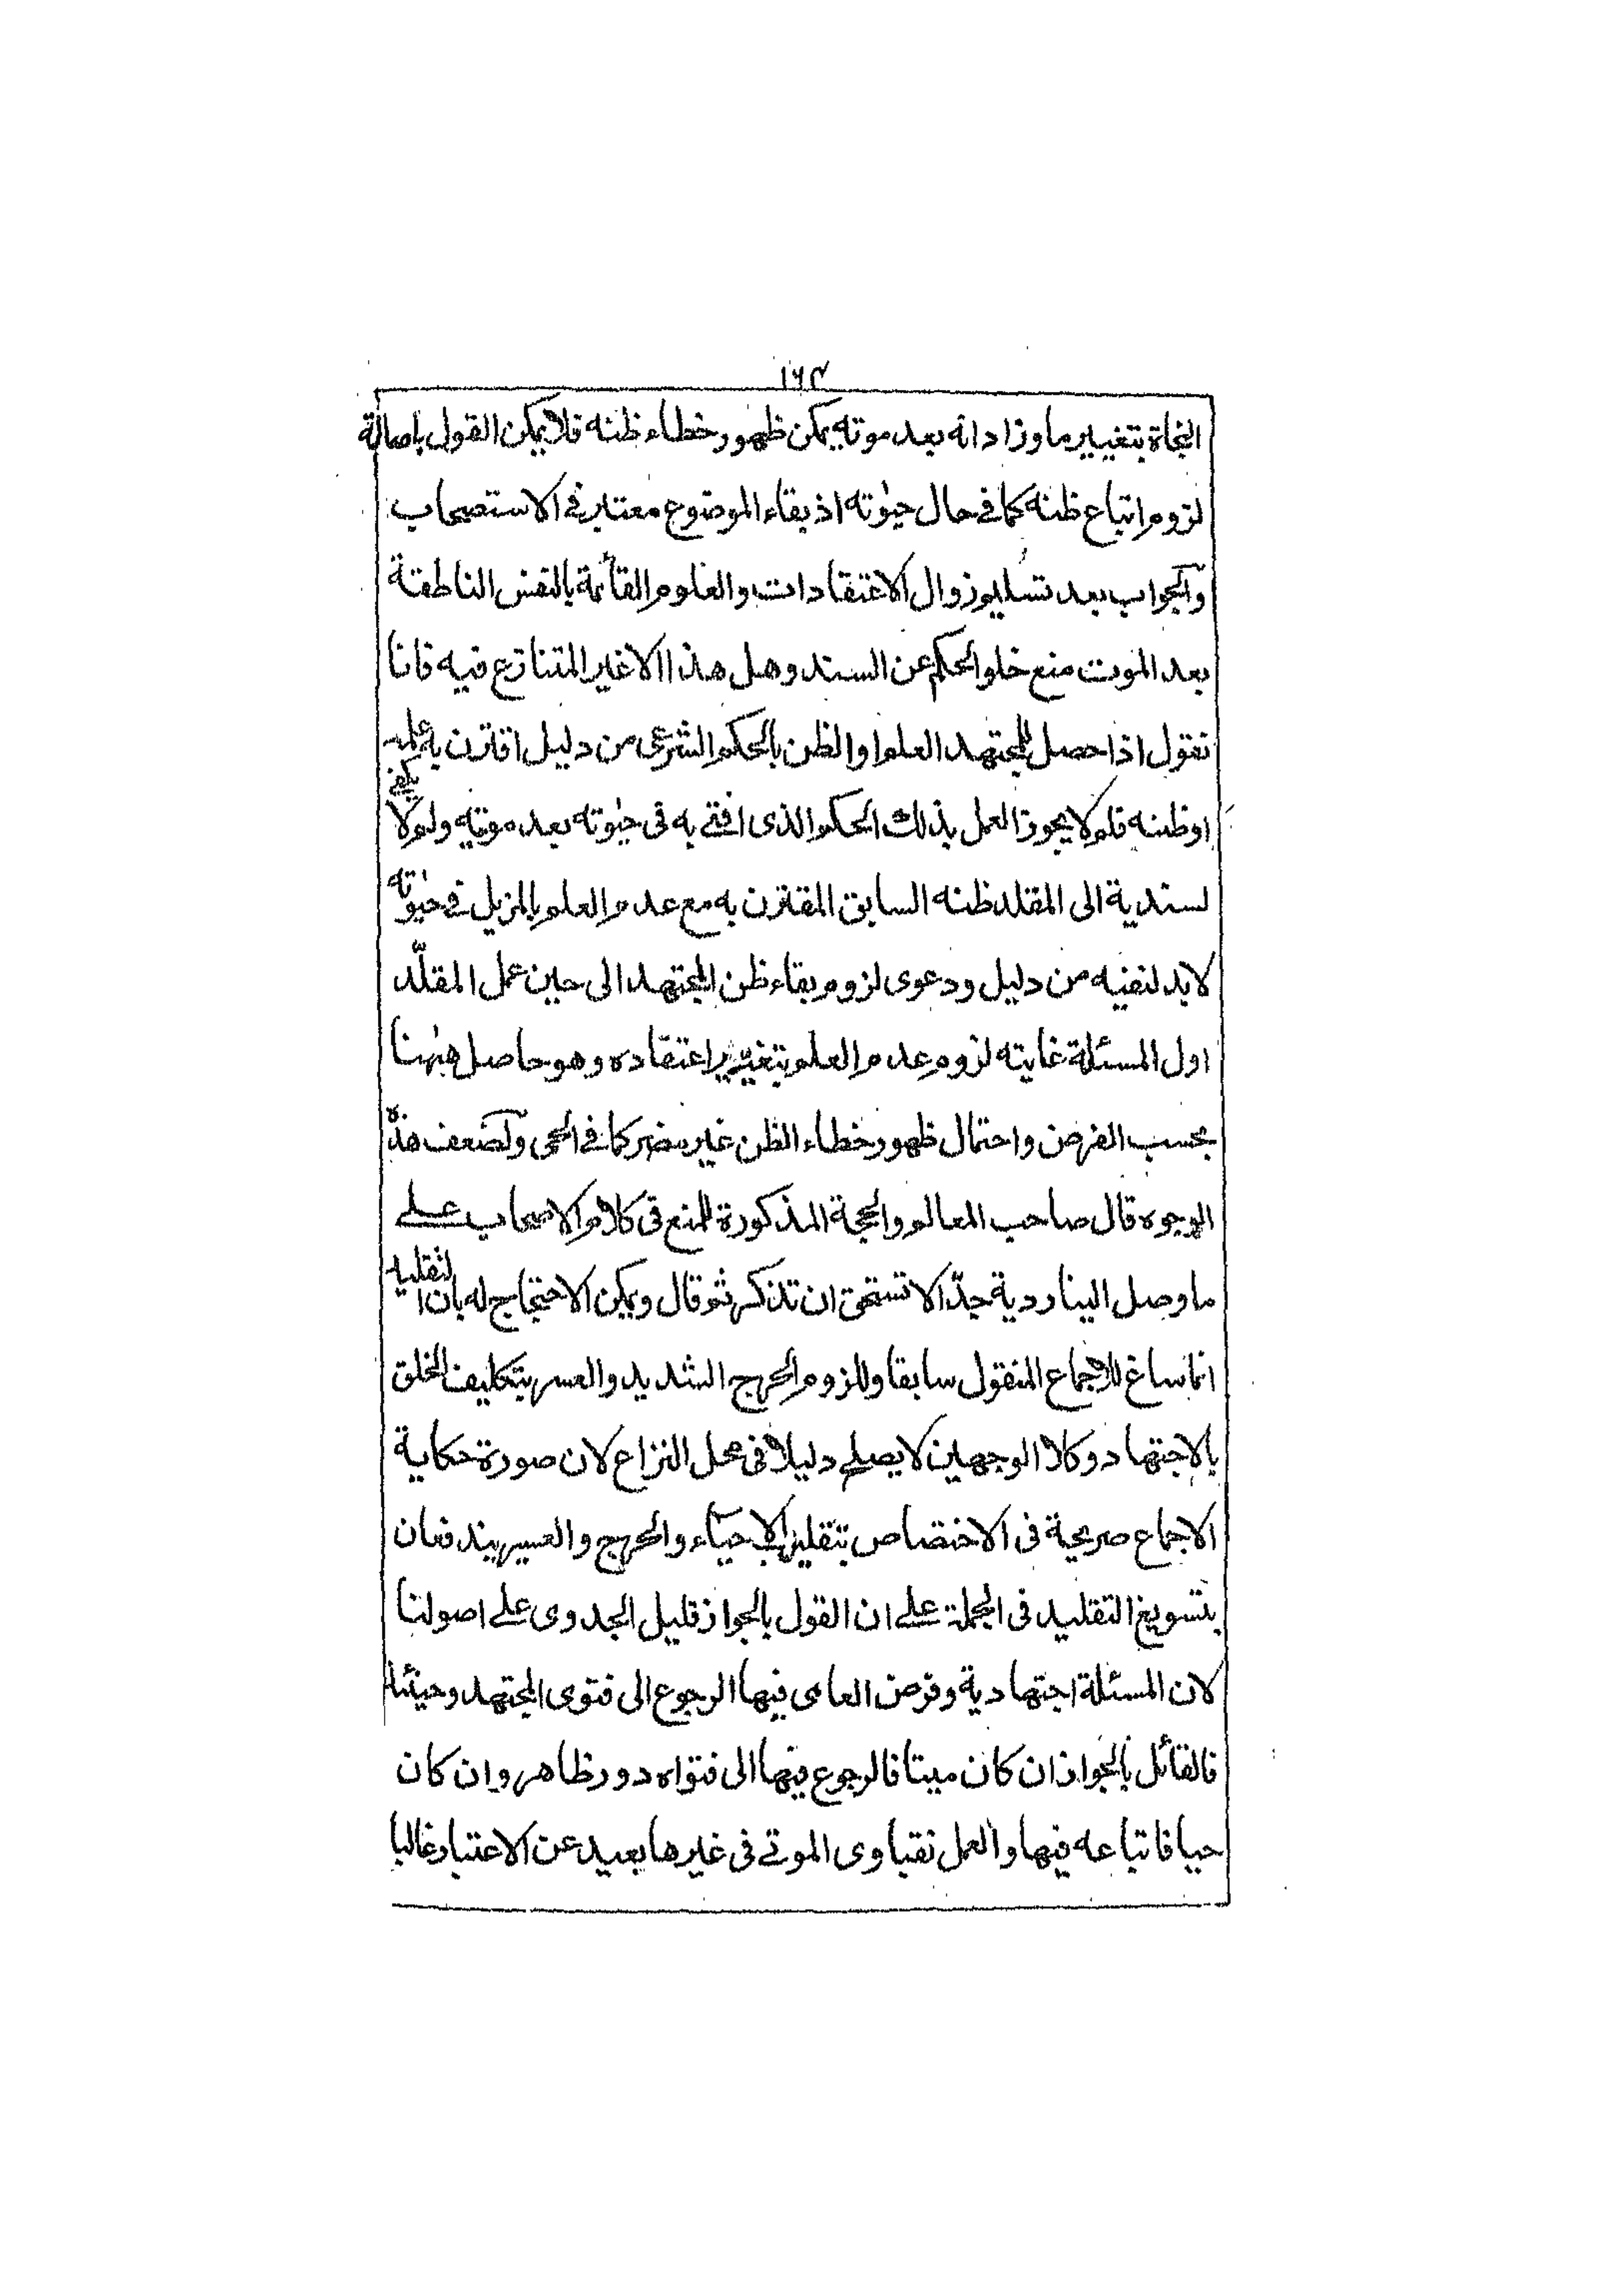 ١٦٣
النجاة بتغيير ما وزاد انه بعد موته يمكن ظهور خطاء ظنه فلا يمكن القول باصالة
لزوم اتباع ظنه كما فى حال حيوٰته اذ بقاء الموضوع معتبر فى الاستصحاب
والجواب بعد تسليم زوال الاعتقادات والعلوم القائمة بالنفس الناطقة
بعد الموت منع خلو الحكم عن السند وهل هذا الا غير المتنازع فيه فانا
نقول اذا حصل للمجتهد العلم او الظن بالحكم الشرعى من دليل اقترن به علمه
او ظنه فلم لا يجوز العمل بذلك الحكم الذى افتى به فى حيٰوته بعد موته ولم لا يكفى
لسندية الى المقلد ظنه السابق المقترن به مع عدم العلم بالمزيل فى حيوٰته
لابد لنفيه من دليل ودعوى لزوم بقاء ظن المجتهد الى حين عمل المقلّد
اول المسئلة غايته لزوم عدم العلم بتغيير اعتقاده وهو حاصل هٰهنا
بحسب الفرض واحتمال ظهور خطاء الظن غير مضر كما فى الحى ولضعف هذه
الوجوه قال صاحب المعالم والحجة المذكورة للمنع فى كلام الاصحاب على
ما وصل الينا ردية جدّا لا تستحق ان تذكر ثم قال ويمكن الاحتجاج له بان التقليد
انما ساغ للاجماع المنقول سابقا وللزوم الحرج الشديد والعسر بتكليف الخلق
بالاجتهاد وكلا الوجهين لا يصلح دليلا فى محل النزاع لان صورة حكاية
الاجماع صريحة فى الاختصاص بتقليد الاحياء والحرج والعسر يندفعان
بتسويغ التقليد فى الجملة على ان القول بالجواز قليل الجدوى على اصولنا
لان المسئلة اجتهادية وفرض العامى فيها الرجوع الى فتوى المجتهد وحينئذ
فالقائل بالجواز ان كان ميتا فالرجوع فيها الى فتواه دور ظاهر وان كان
حيا فاتباعه فيها والعمل بفتاوى الموتى فى غيرها بعيد عن الاعتبار غالبا